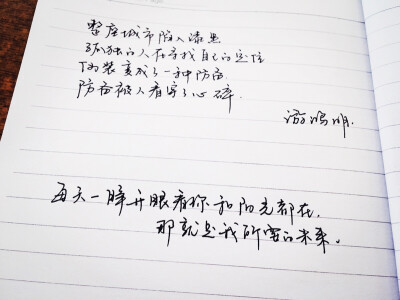 整座城市陷入漆黑
孤独的人在寻找自己的定位
伪装变成了一种防备
防备被人看穿了心碎
游鸿明.
每天一睁开眼看你和阳光都在,
那就是我所要的未来。